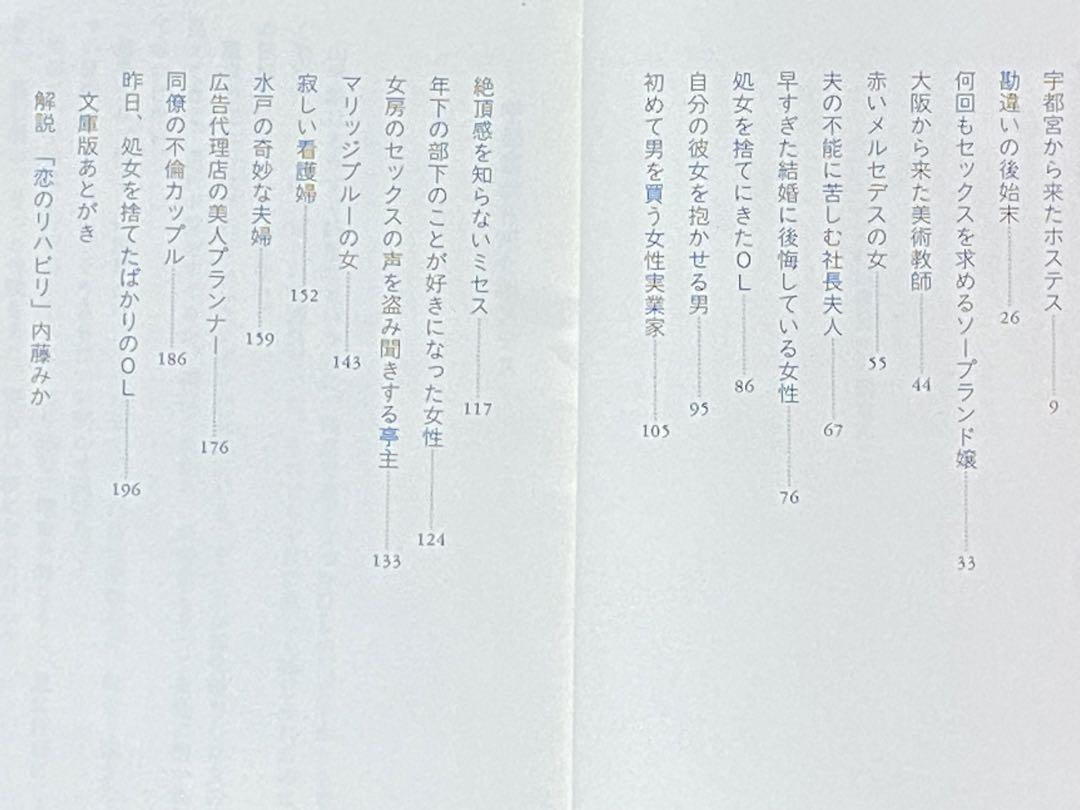 宇都宮から来たホステス 9
勘違いの後始末 26
何回もセックスを求めるソープランド嬢 33
大阪から来た美術教師 44
赤いメルセデスの女 55
夫の不能に苦しむ社長夫人 67
早すぎた結婚に後悔している女性 76
処女を捨てにきたOL 86
自分の彼女を抱かせる男 95
初めて男を買う女性実業家 105
絶頂感を知らないミセス 117
年下の部下のことが好きになった女性 124
女房のセックスの声を盗み聞きする亭主 133
マリッジブルーの女 143
寂しい看護婦 152
水戸の奇妙な夫婦 159
広告代理店の美人プランナー 176
同僚の不倫カップル 186
昨日、処女を捨てたばかりのOL 196
文庫版あとがき
解説 「恋のリハビリ」内藤みか